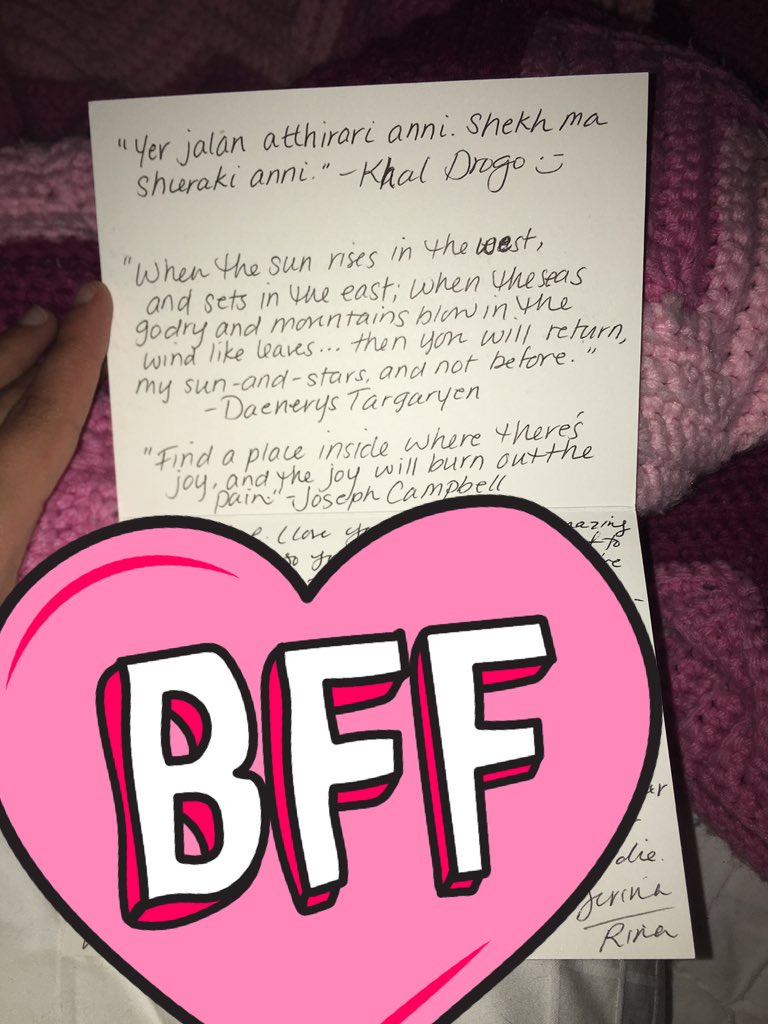 "Yer jalan atthirari anni. Shekh ma
shieraki anni." - Khal Drogo :)
"When the sun rises in the west,
and sets in the east; when the seas
go dry and mountains blow in the
wind like leaves... then you will return,
my sun-and-stars, and not before."
- Daenerys Targaryen
"Find a place inside where there's
joy, and the joy will burn out the
pain" - Joseph Campbell
I love
amazing
so
to
BFF
die.
Rina